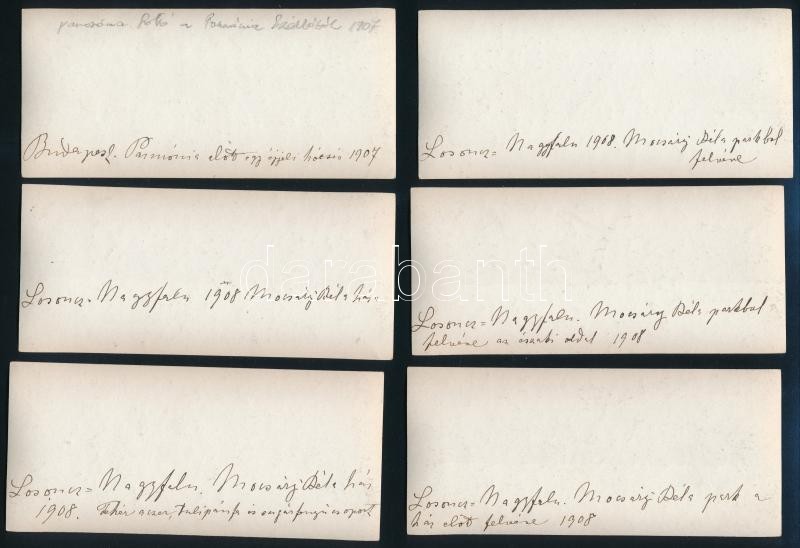 panoráma fotó a Pannónia Szállóból 1907
Budapest. Pannónia előtt egy éjjeli hóesés 1907
Losoncz=Nagyfalu 1908. Mocsáry Béla parkbol
felvéve
Losoncz=Nagyfalu 1908 Mocsáry Béla ház
Losoncz=Nagyfalu. Mocsáry Béla parkbol
felvéve az északi oldal 1908
Losoncz=Nagyfalu. Mocsáry Béla ház
1908. Fehér acer, tulipánfa és csoport
Losoncz=Nagyfalu. Mocsáry Béla park a
ház előtt felvéve 1908
darabanth